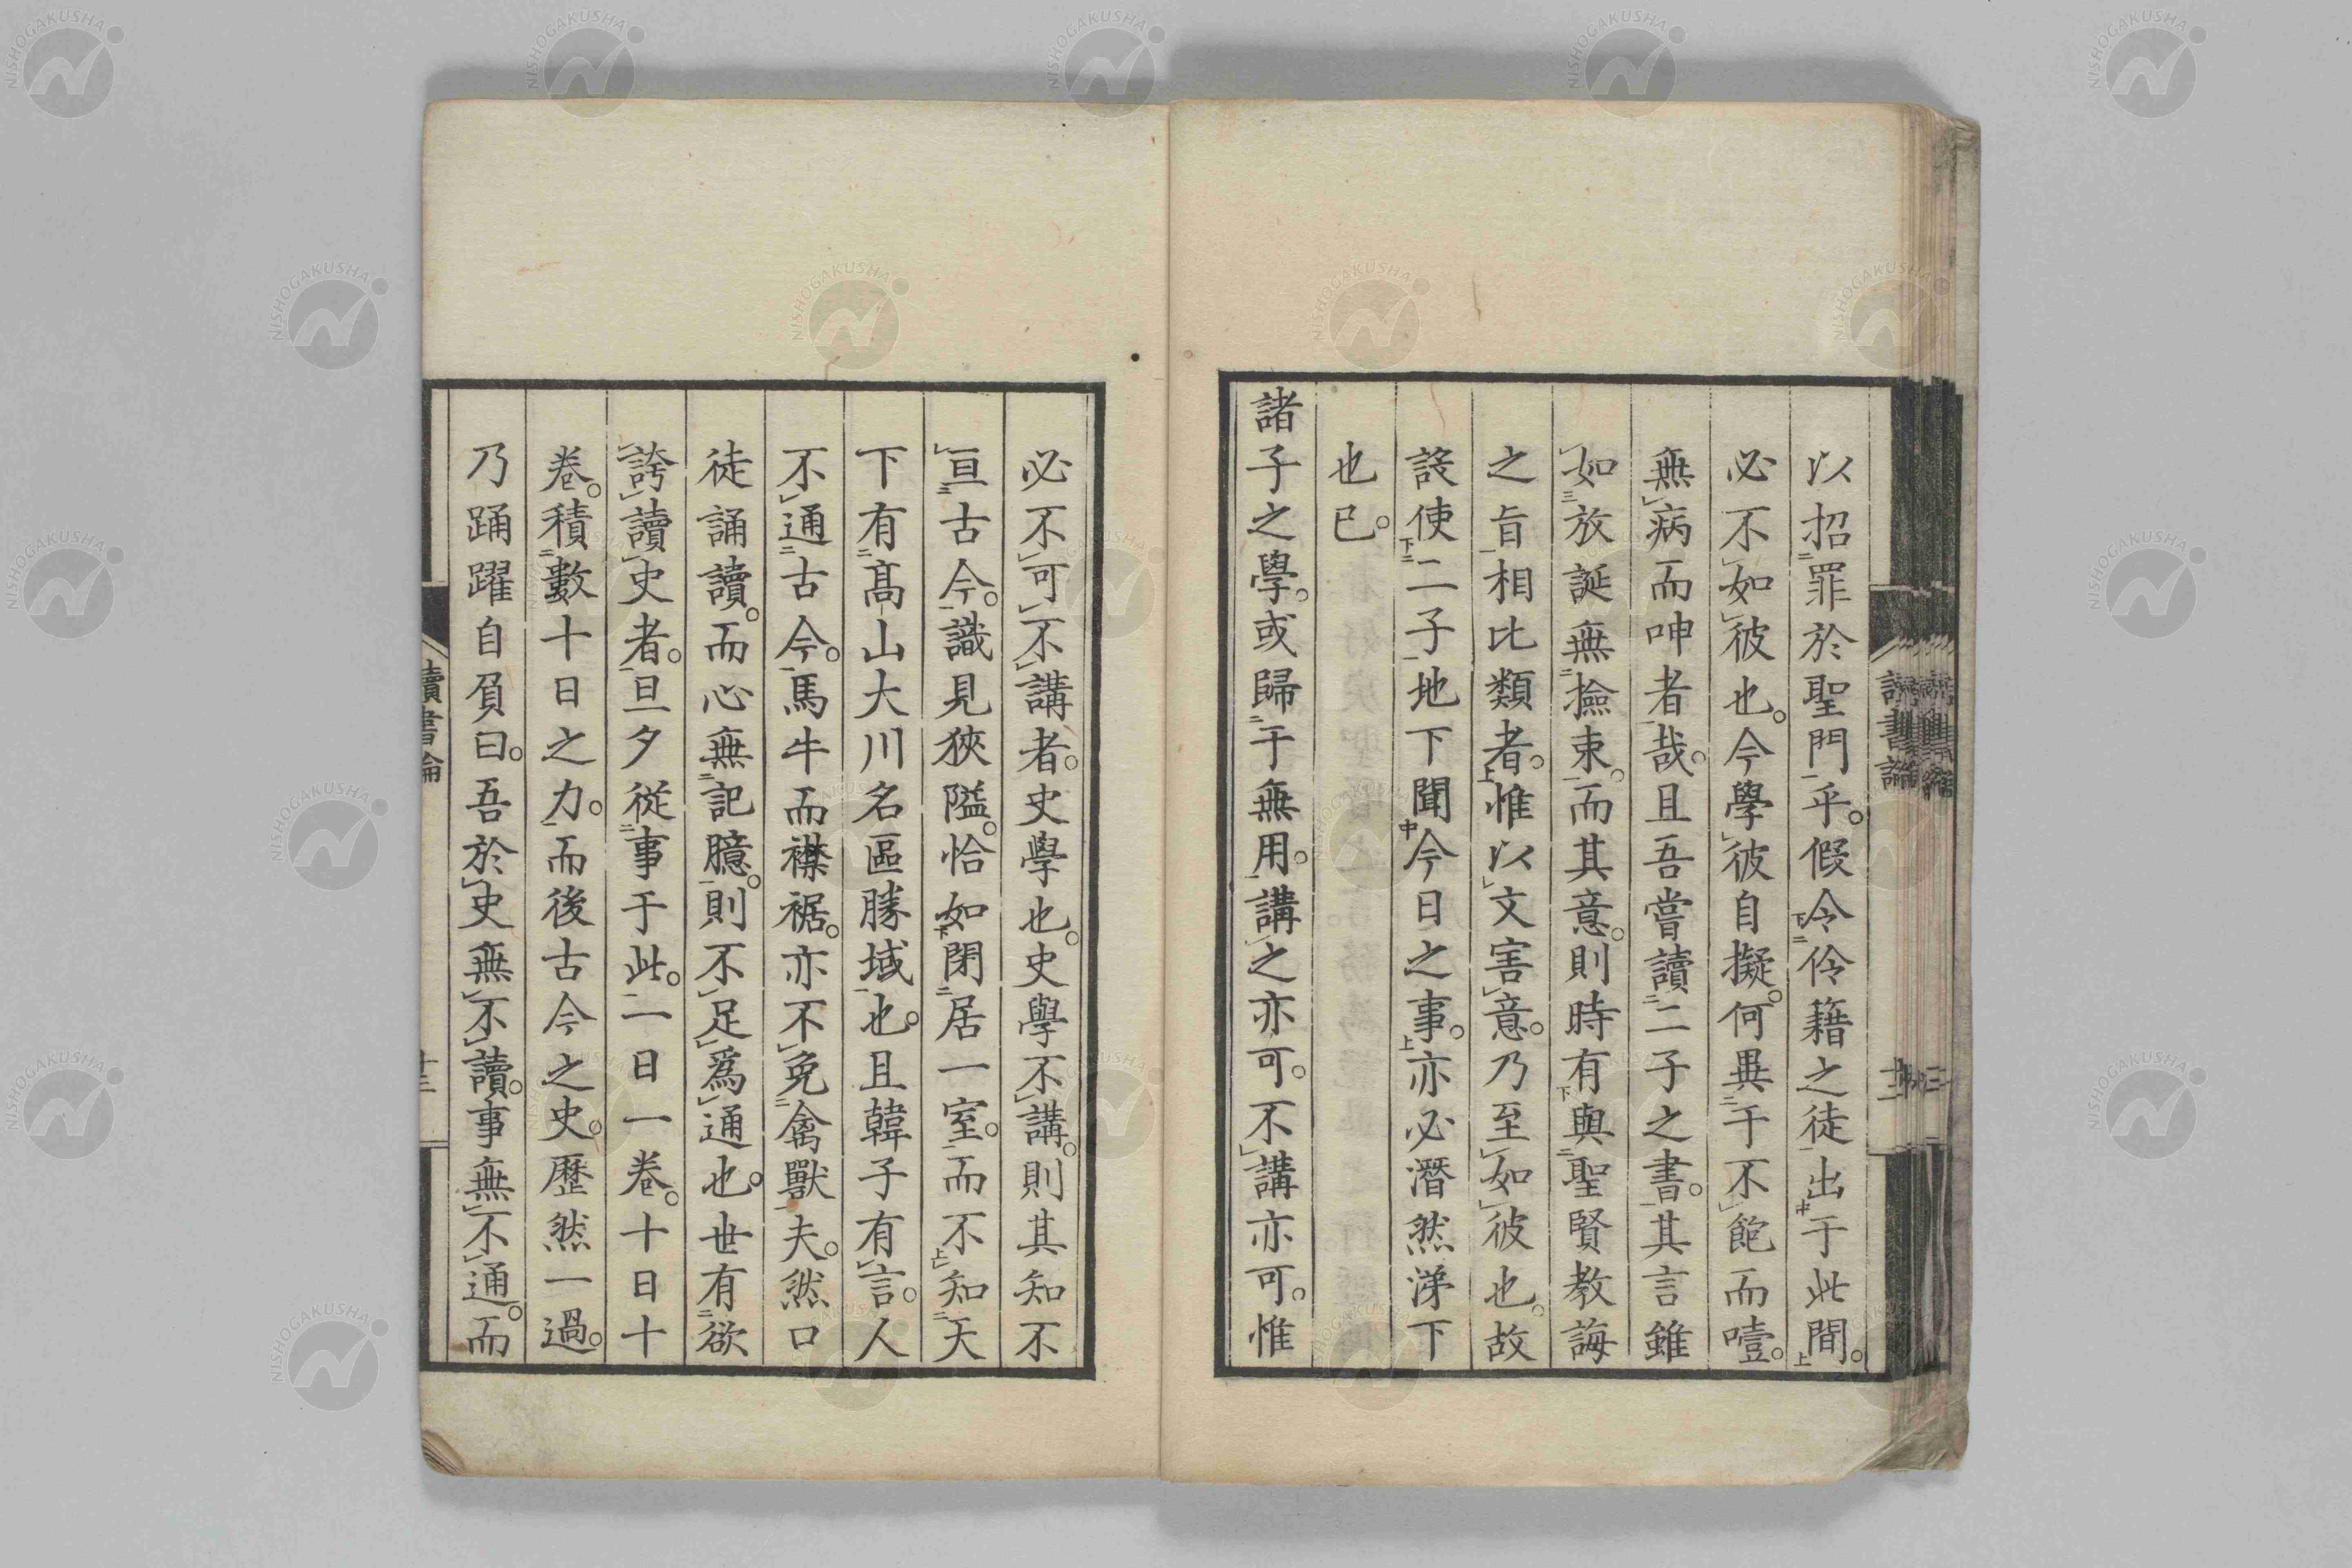 以招罪於聖門乎。假令伶籍之徒出于此間。
必不如彼也。今學彼自擬。何異于不飽而噎。
無病而呻者哉。且吾嘗讀二子之書。其言雖
如放誕無撿束。而其意。則時有與聖賢教誨
之旨相比類者。惟以文害意。乃至如彼也。故
設使二子地下聞今日之事。亦必潛然涕下
也已。
諸子之學。或歸于無用。講之亦可。不講亦可。惟
必不可不講者。史學也。史學不講。則其知不
亘古今。識見狹隘。恰如閉居一室。而不知天
下有高山大川名區勝域也。且韓子有言。人
不通古今。馬牛而襟裾。亦不免禽獸夫。然口
徒誦讀。而心無記臆。則不足為通也。世有欲
誇讀史者。旦夕從事于此。一日一卷。十日十
卷。積數十日之力。而後古今之史。歷然一過。
乃踊躍自負曰。吾於史無不讀。事無不通。而
讀書論
十三
讀書論
十二
NISHOGAKUSHA